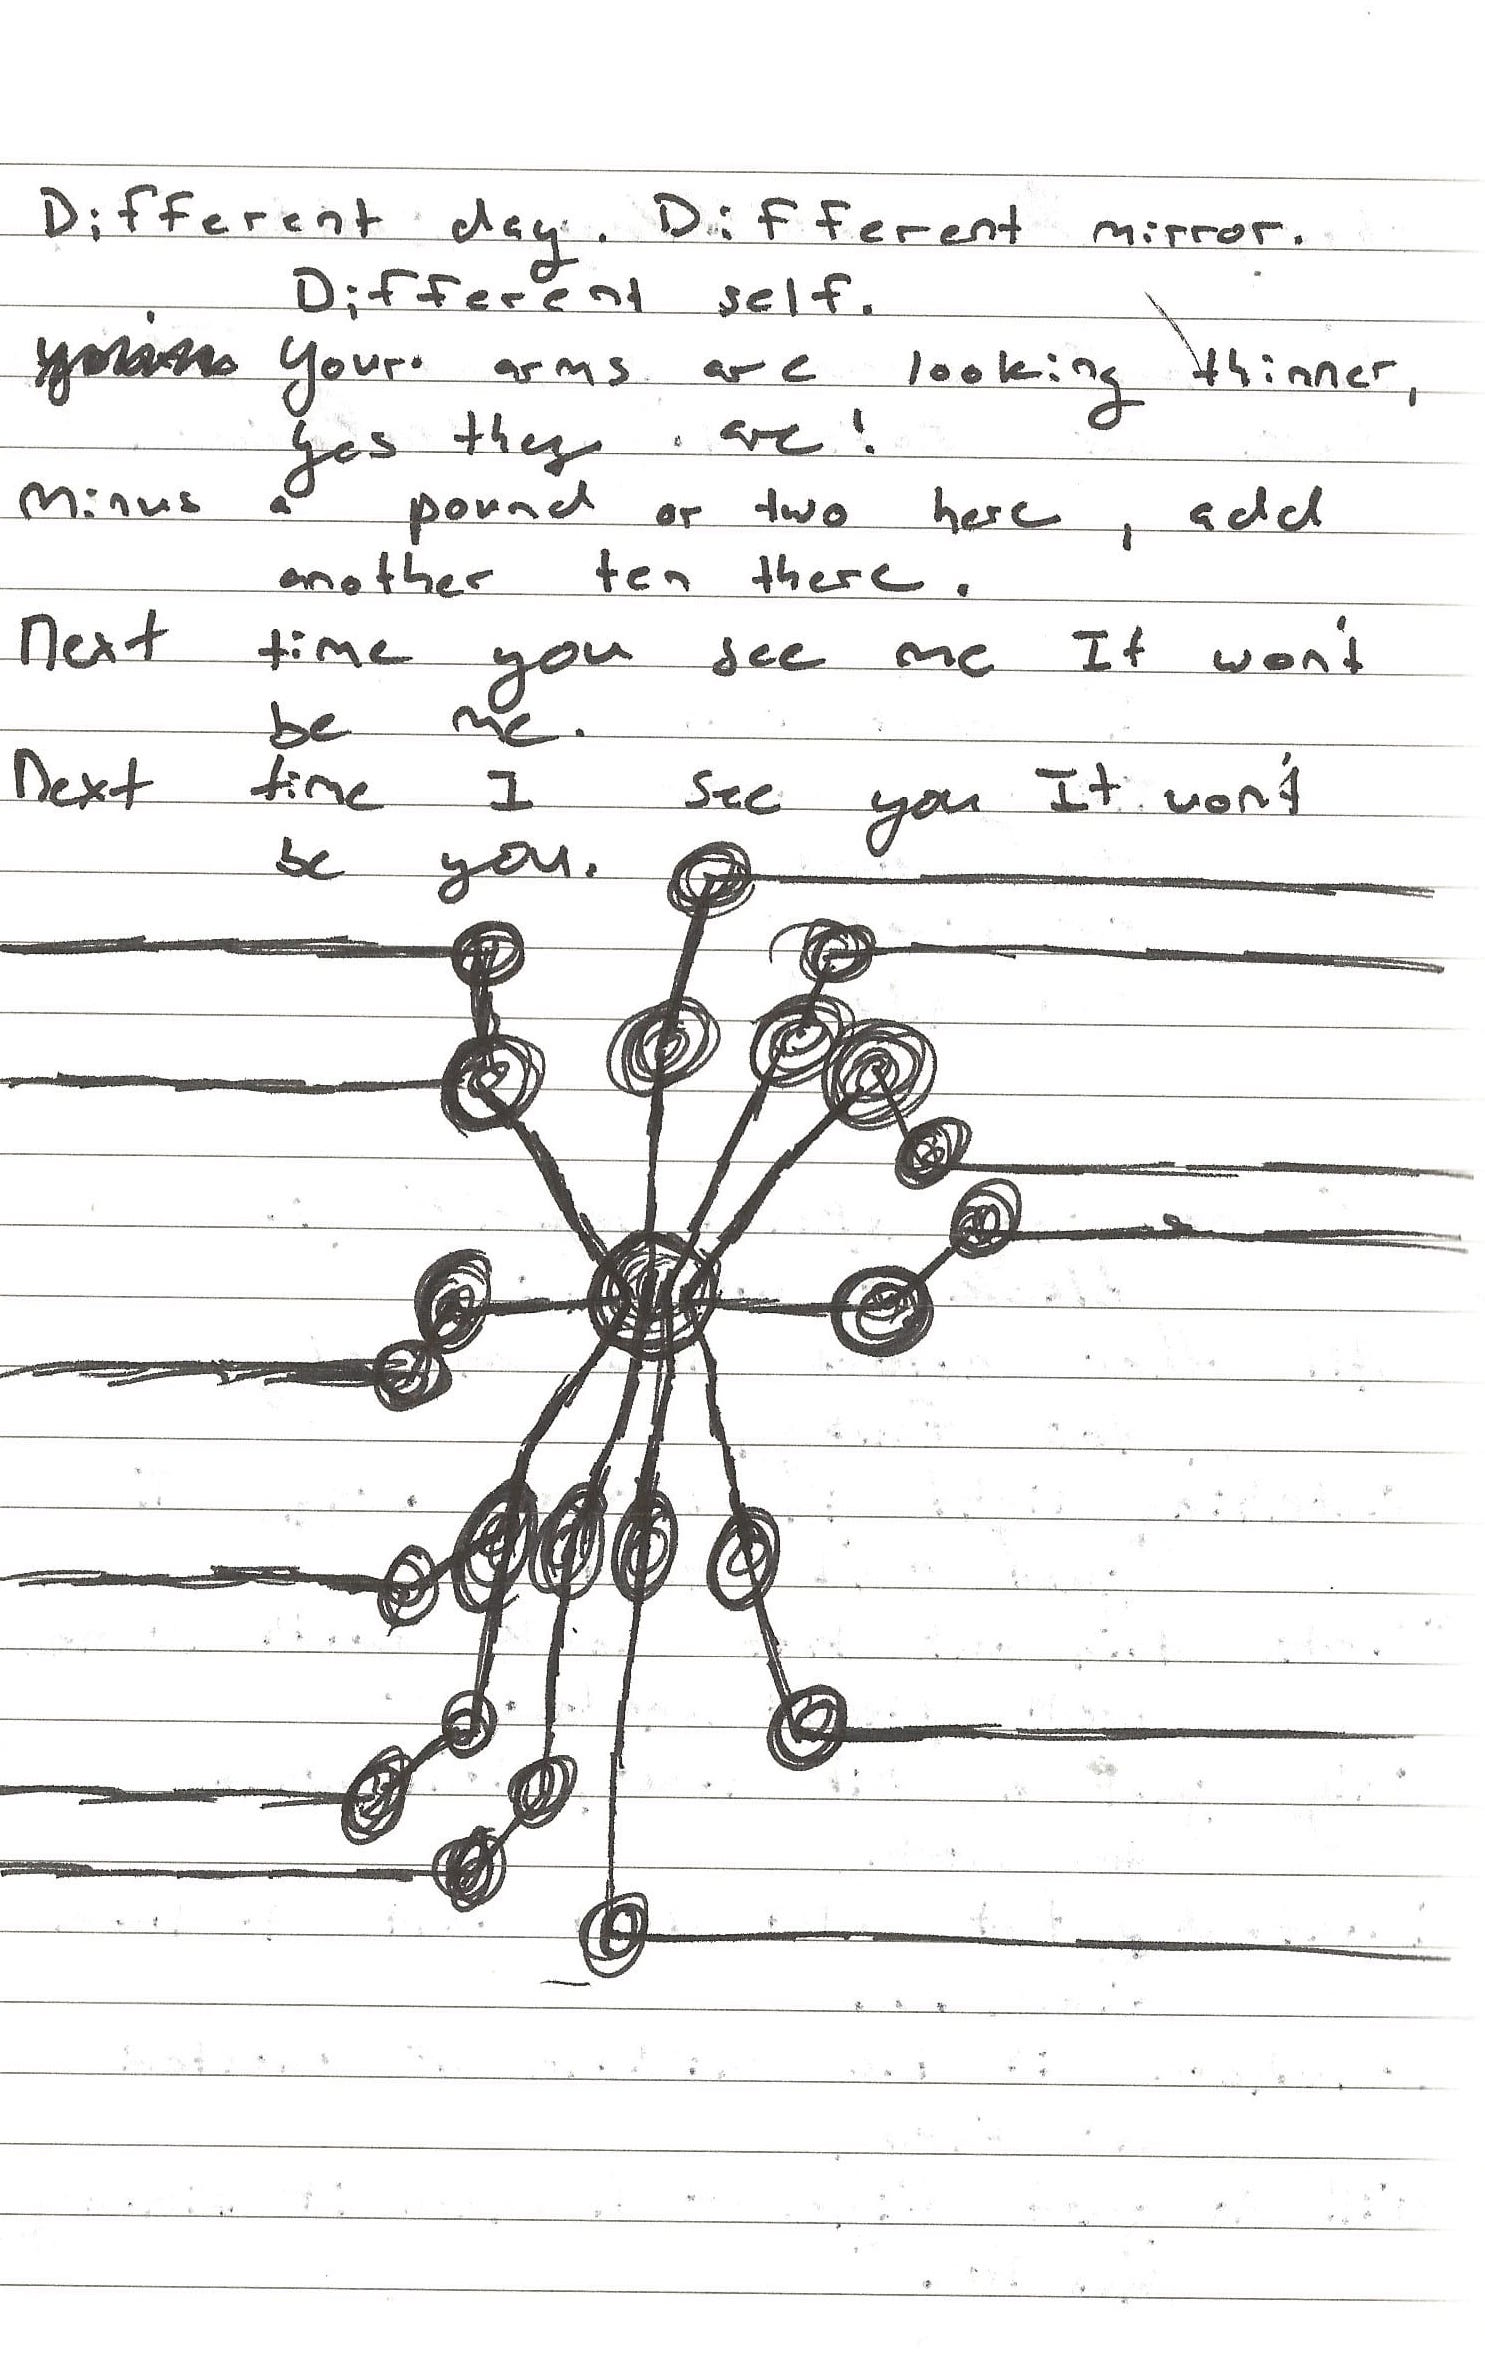 Different day. Different mirror.
Different self.
Your arms are looking thinner,
yes they are!
Minus a pound or two here, add
another ten there.
Next time you see me It won't
be me.
Next time I see you It won't
be you.